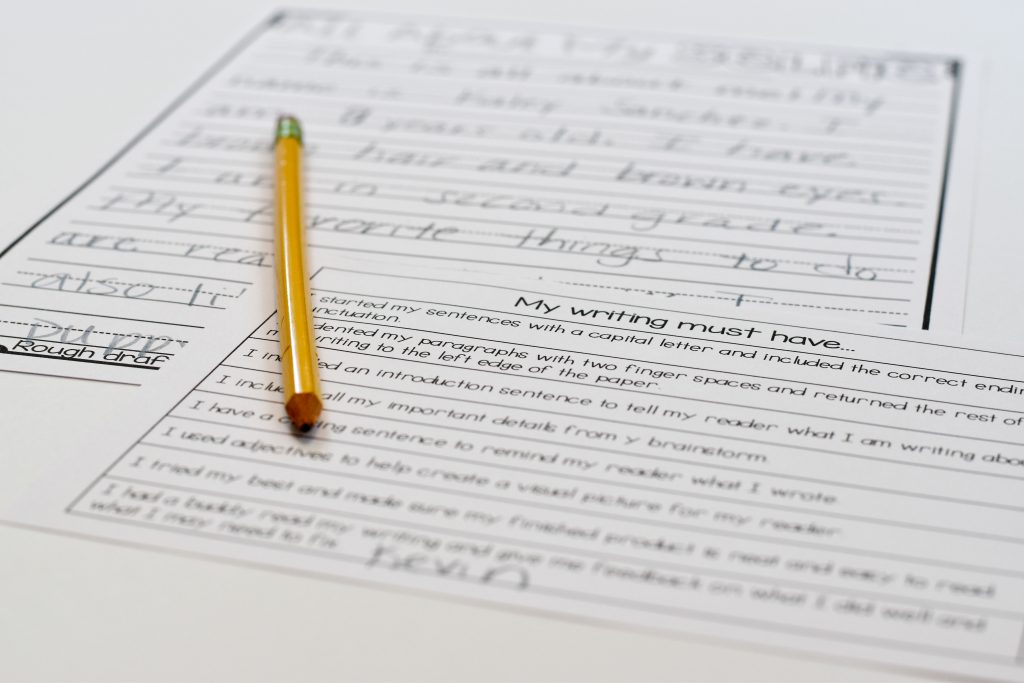 All About My
This is all about me! My
name is Sanchez. I
am 8 years old. I have
brown hair and brown eyes.
I am in second grade.
My favorite things to do
are rea
also li
Rough draf
My writing must have...
started my sentences with a capital letter and included the correct endin
unctuation.
dented my paragraphs with two finger spaces and returned the rest of
m writing to the left edge of the paper.
I in ed an introduction sentence to tell my reader what I am writing abou
I inclu all my important details from y brainstorm.
I have a ing sentence to remind my reader what I wrote.
I used adjectives to help create a visual picture for my reader.
I tried my best and made sure my finished product is neat and easy to read.
I had a buddy read my writing and give me feedback on what I did well and
what I may need to fix. Kevin